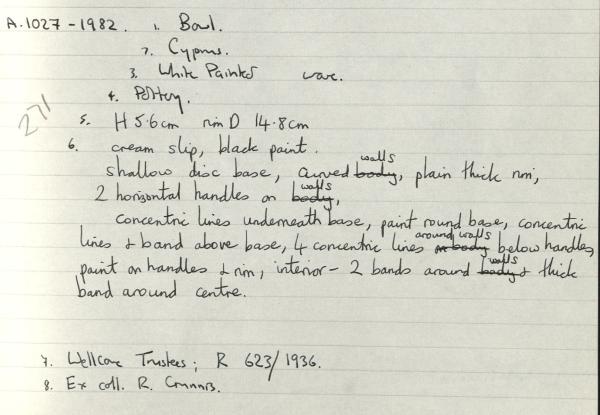 A.1027-1982. 1. Bowl.
2. Cyprus.
3. White Painted ware.
4. Pottery.
271
5. H 5.6cm rim D 14.8cm
6. cream slip, black paint.
shallow disc base, curved body walls, plain thick rim,
2 horizontal handles on body walls,
concentric lines underneath base, paint round base, concentric
lines & band above base, 4 concentric lines on body around walls below handles,
paint on handles & rim, interior - 2 bands around body walls & thick
band around centre.
7. Wellcome Trustees; R 623/1936.
8. Ex coll. R.